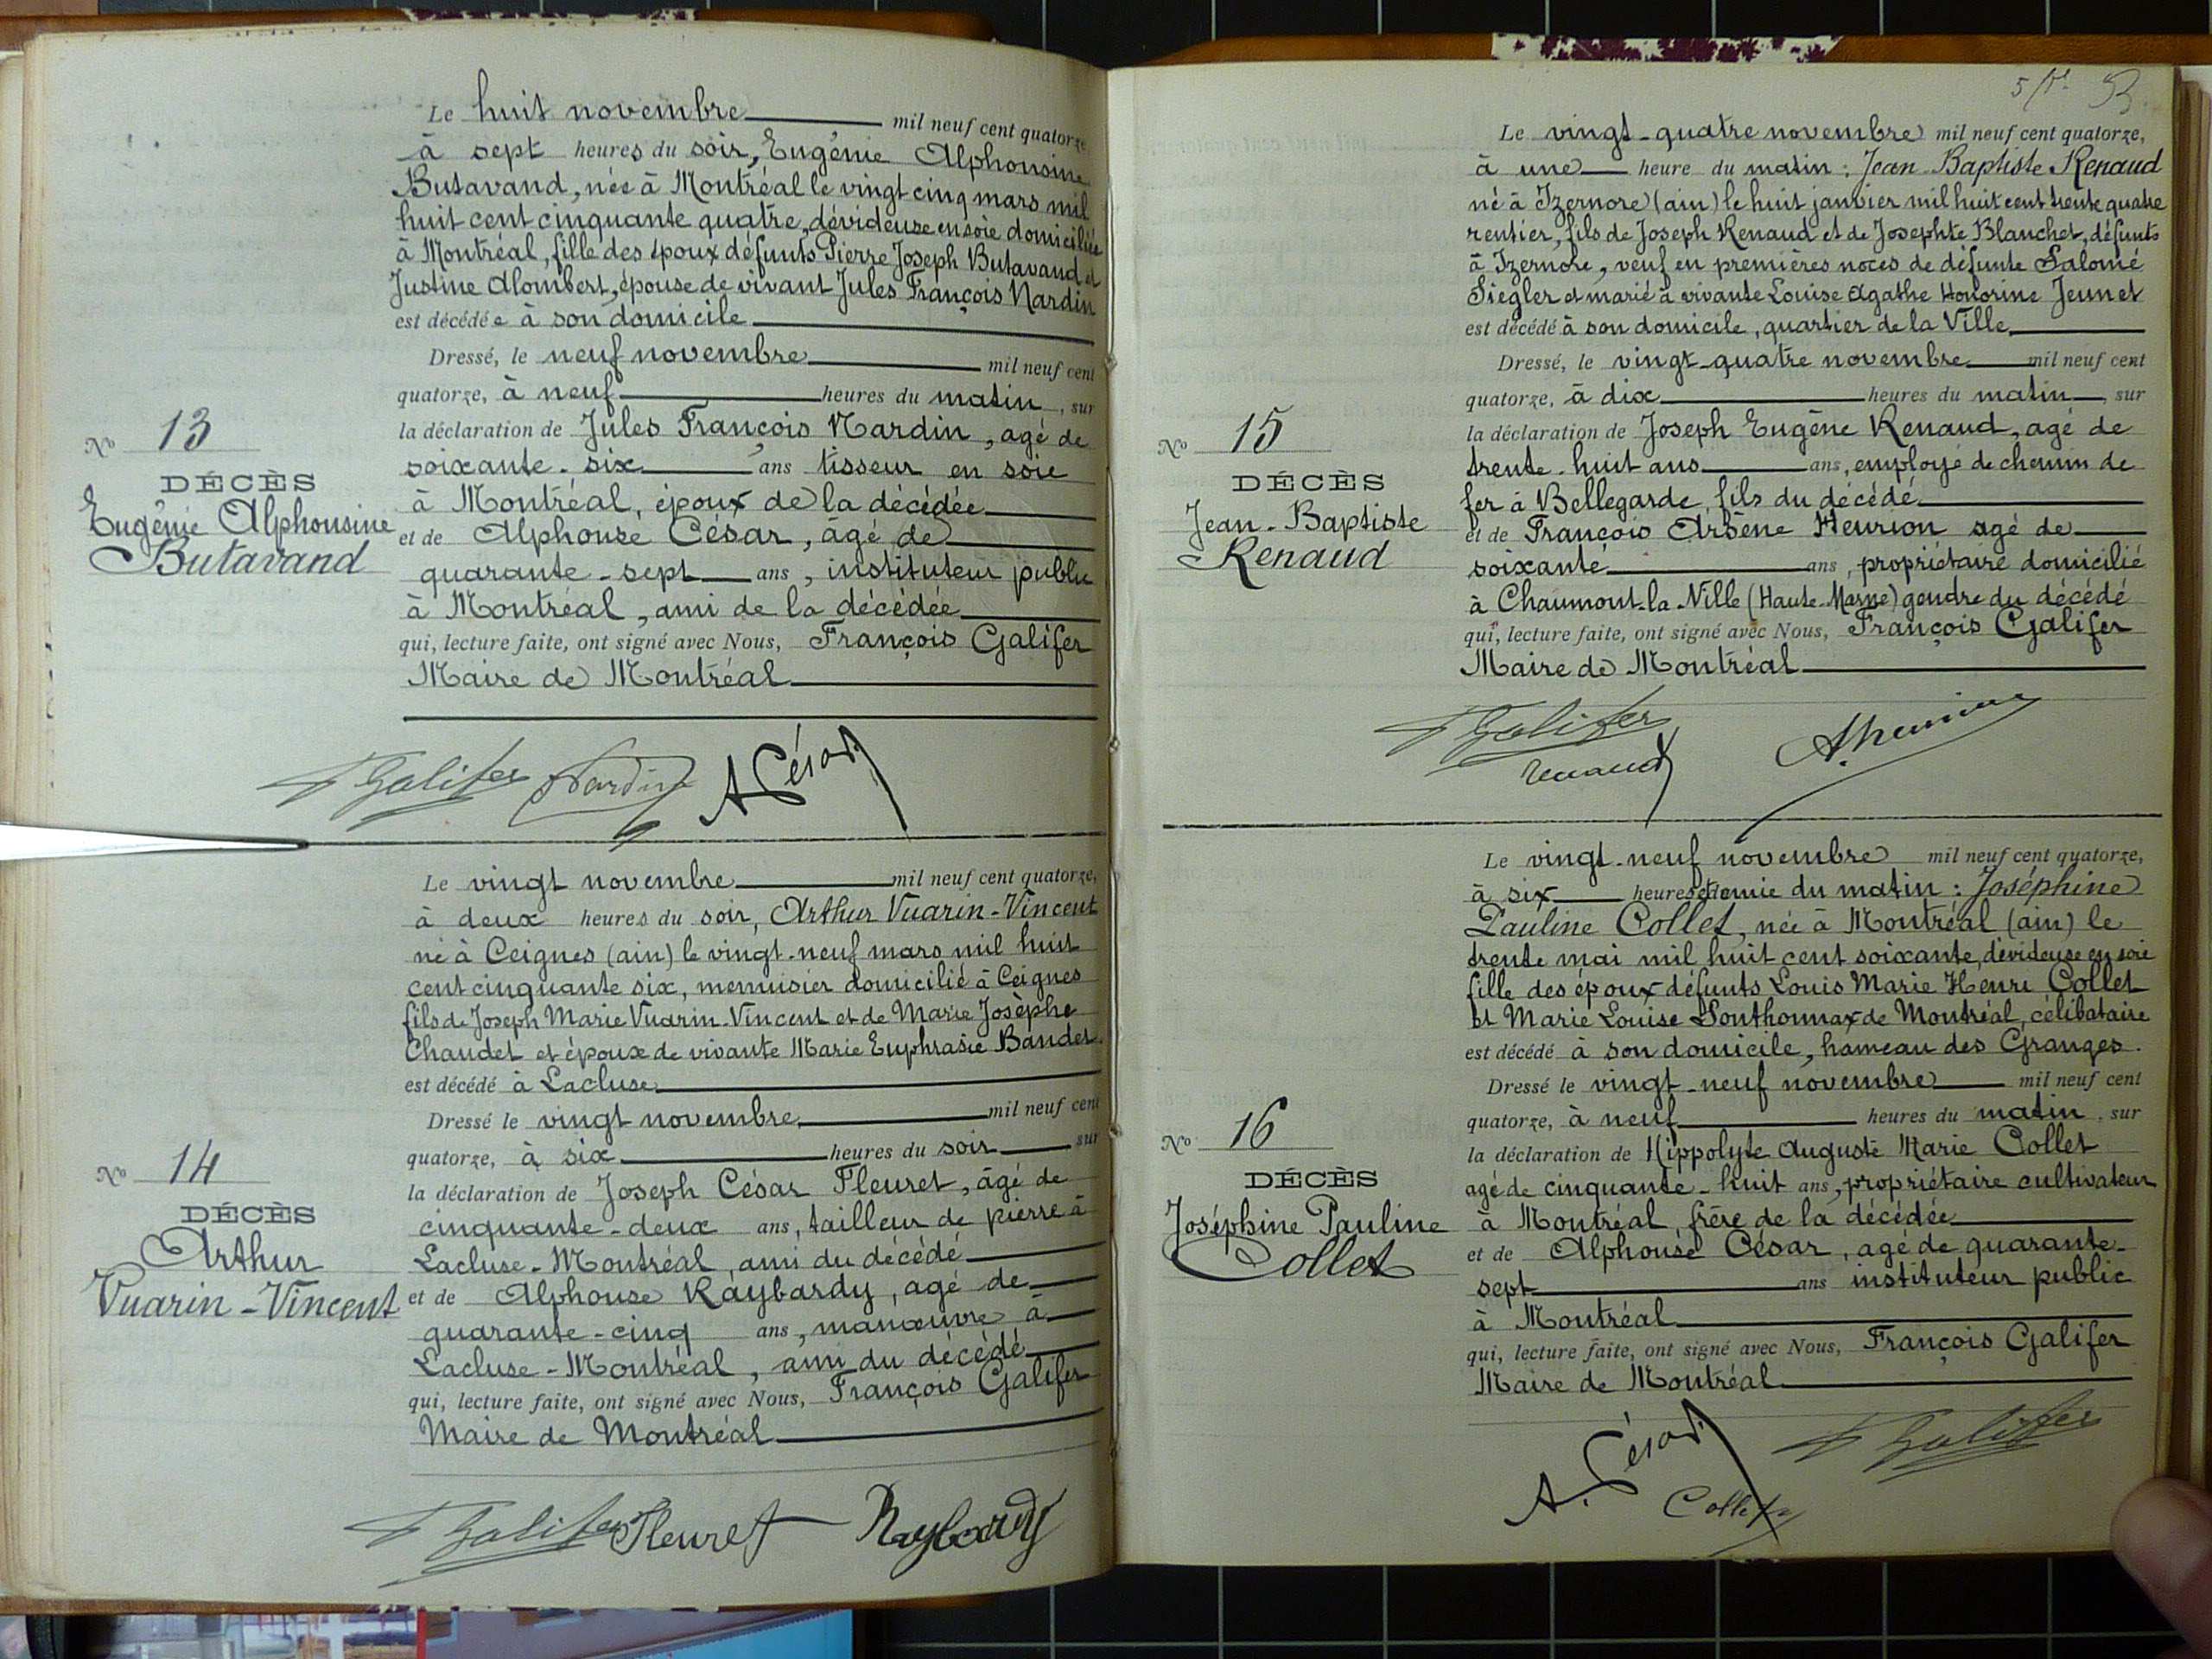 Le huit novembre mil neuf cent quatorze
à sept heures du soir, Eugénie Alphonsine
Butavand, née à Montréal le vingt cinq mars mil
huit cent cinquante quatre, dévideuse en soie domiciliée
à Montréal, fille des époux défunts Pierre Joseph Butavand et
Justine Alombert, épouse de vivant Jules François Nardin
est décédée à son domicile
Dressé, le neuf novembre mil neuf cent
quatorze, à neuf heures du matin, sur
la déclaration de Jules François Nardin, agé de
soixante-six ans tisseur en soie
à Montréal, époux de la décédée
et de Alphonse César, âgé de
quarante-sept ans, instituteur public
à Montréal, ami de la décédée
qui, lecture faite, ont signé avec Nous, François Galifer
Maire de Montréal
No 13
DÉCÈS
Eugénie Alphonsine
Butavand
F Galifer Nardin A César
Le vingt novembre mil neuf cent quatorze,
à deux heures du soir, Arthur Vuarin-Vincent
né à Ceignes (ain) le vingt-neuf mars mil huit
cent cinquante six, menuisier domicilié à Ceignes
fils de Joseph Marie Vuarin-Vincent et de Marie Josèphe
Chaudet et époux de vivante Marie Euphrasie Bandet.
est décédé à Lacluse
Dressé le vingt novembre mil neuf cent
quatorze, à six heures du soir sur
la déclaration de Joseph César Fleuret, âgé de
cinquante-deux ans, tailleur de pierre à
Lacluse-Montréal, ami du décédé
et de Alphonse Raybardy, agé de
quarante-cinq ans, manœuvre à
Lacluse-Montréal, ami du décédé
qui, lecture faite, ont signé avec Nous, François Galifer
Maire de Montréal
No 14
DÉCÈS
Arthur
Vuarin-Vincent
F Galifer Fleuret Raybardy
5
Le vingt-quatre novembre mil neuf cent quatorze,
à une heure du matin: Jean Baptiste Renaud
né à Izernore (ain) le huit janvier mil huit cent trente quatre
rentier, fils de Joseph Renaud et de Josephte Blanchet, défunts
à Izernore, veuf en premières noces de défunte Salomé
Siegler et marié à vivante Louise Agathe Honorine Jeunet
est décédé à son domicile, quartier de la Ville
Dressé, le vingt-quatre novembre mil neuf cent
quatorze, à dix heures du matin, sur
la déclaration de Joseph Eugène Renaud, agé de
trente-huit ans ans, employé de chemin de
fer à Bellegarde, fils du décédé
et de François Arsène Henrion agé de
soixante ans, propriétaire domicilié
à Chaumont-la-Ville (Haute-Marne) gendre du décédé
qui, lecture faite, ont signé avec Nous, François Galifer
Maire de Montréal
No 15
DÉCÈS
Jean-Baptiste
Renaud
F Galifer
renaud
Le vingt-neuf novembre mil neuf cent quatorze,
à six heures et demie du matin: Joséphine
Pauline Collet, née à Montréal (ain) le
trente mai mil huit cent soixante, dévideuse en soie
fille des époux défunts Louis Marie Henri Collet
et Marie Louise Sonthonnax de Montréal, célibataire
est décédé à son domicile, hameau des Granges.
Dressé le vingt-neuf novembre mil neuf cent
quatorze, à neuf heures du matin, sur
la déclaration de Hippolyte Auguste Marie Collet
agé de cinquante-huit ans, propriétaire cultivateur
à Montréal, frère de la décédée
et de Alphonse César, agé de quarante-
sept ans instituteur public
à Montréal
qui, lecture faite, ont signé avec Nous, François Galifer
Maire de Montréal
No 16
DÉCÈS
Joséphine Pauline
Collet
A. César F Galifer
Collet